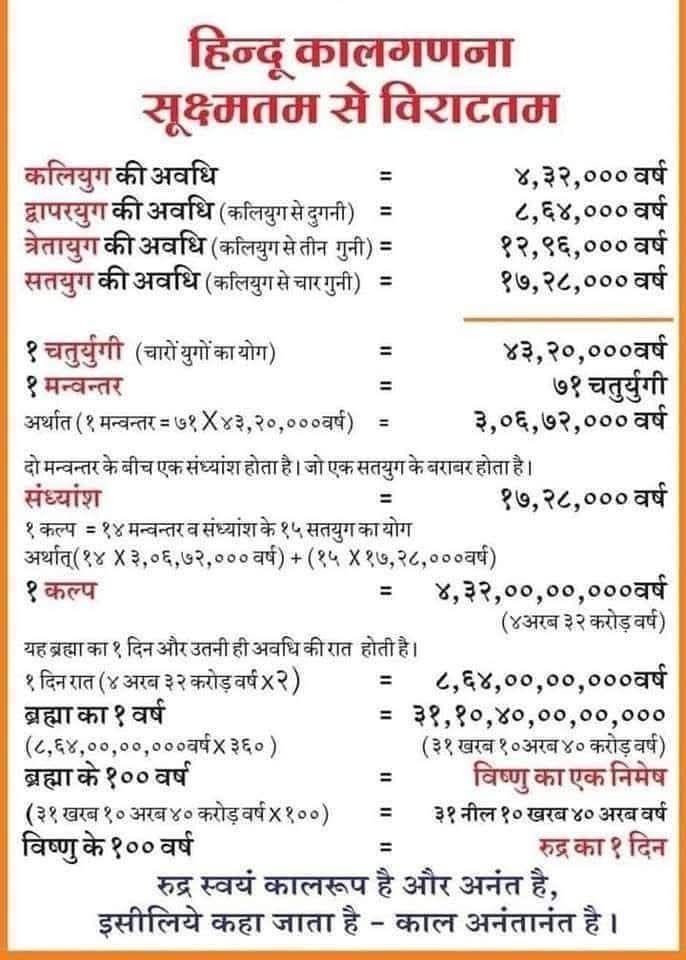 हिन्दू कालगणना
सूक्ष्मतम से विराटतम
कलियुग की अवधि = ४,३२,००० वर्ष
द्वापरयुग की अवधि (कलियुग से दुगनी) = ८,६४,००० वर्ष
त्रेतायुग की अवधि (कलियुग से तीन गुनी) = १२,९६,००० वर्ष
सतयुग की अवधि (कलियुग से चार गुनी) = १७,२८,००० वर्ष
१ चतुर्युगी (चारों युगों का योग) = ४३,२०,०००वर्ष
१ मन्वन्तर = ७१ चतुर्युगी
अर्थात (१ मन्वन्तर = ७१ X ४३,२०,०००वर्ष) = ३,०६,७२,००० वर्ष
दो मन्वन्तर के बीच एक संध्यांश होता है। जो एक सतयुग के बराबर होता है।
संध्यांश = १७,२८,००० वर्ष
१ कल्प = १४ मन्वन्तर व संध्यांश के १५ सतयुग का योग
अर्थात्(१४ X ३,०६,७२,००० वर्ष) + (१५ X १७,२८,०००वर्ष)
१ कल्प = ४,३२,००,००,०००वर्ष
(४अरब ३२ करोड़ वर्ष)
यह ब्रह्मा का १ दिन और उतनी ही अवधि की रात होती है।
१ दिन रात (४ अरब ३२ करोड़ वर्ष X २) = ८,६४,००,००,०००वर्ष
ब्रह्मा का १ वर्ष = ३१,१०,४०,००,००,०००
(८,६४,००,००,०००वर्ष X ३६० ) (३१ खरब १०अरब ४० करोड़ वर्ष)
ब्रह्मा के १०० वर्ष = विष्णु का एक निमेष
(३१ खरब १० अरब ४० करोड़ वर्ष X १००) = ३१ नील १० खरब ४० अरब वर्ष
विष्णु के १०० वर्ष = रुद्र का १ दिन
रुद्र स्वयं कालरूप है और अनंत है,
इसीलिये कहा जाता है - काल अनंतानंत है।